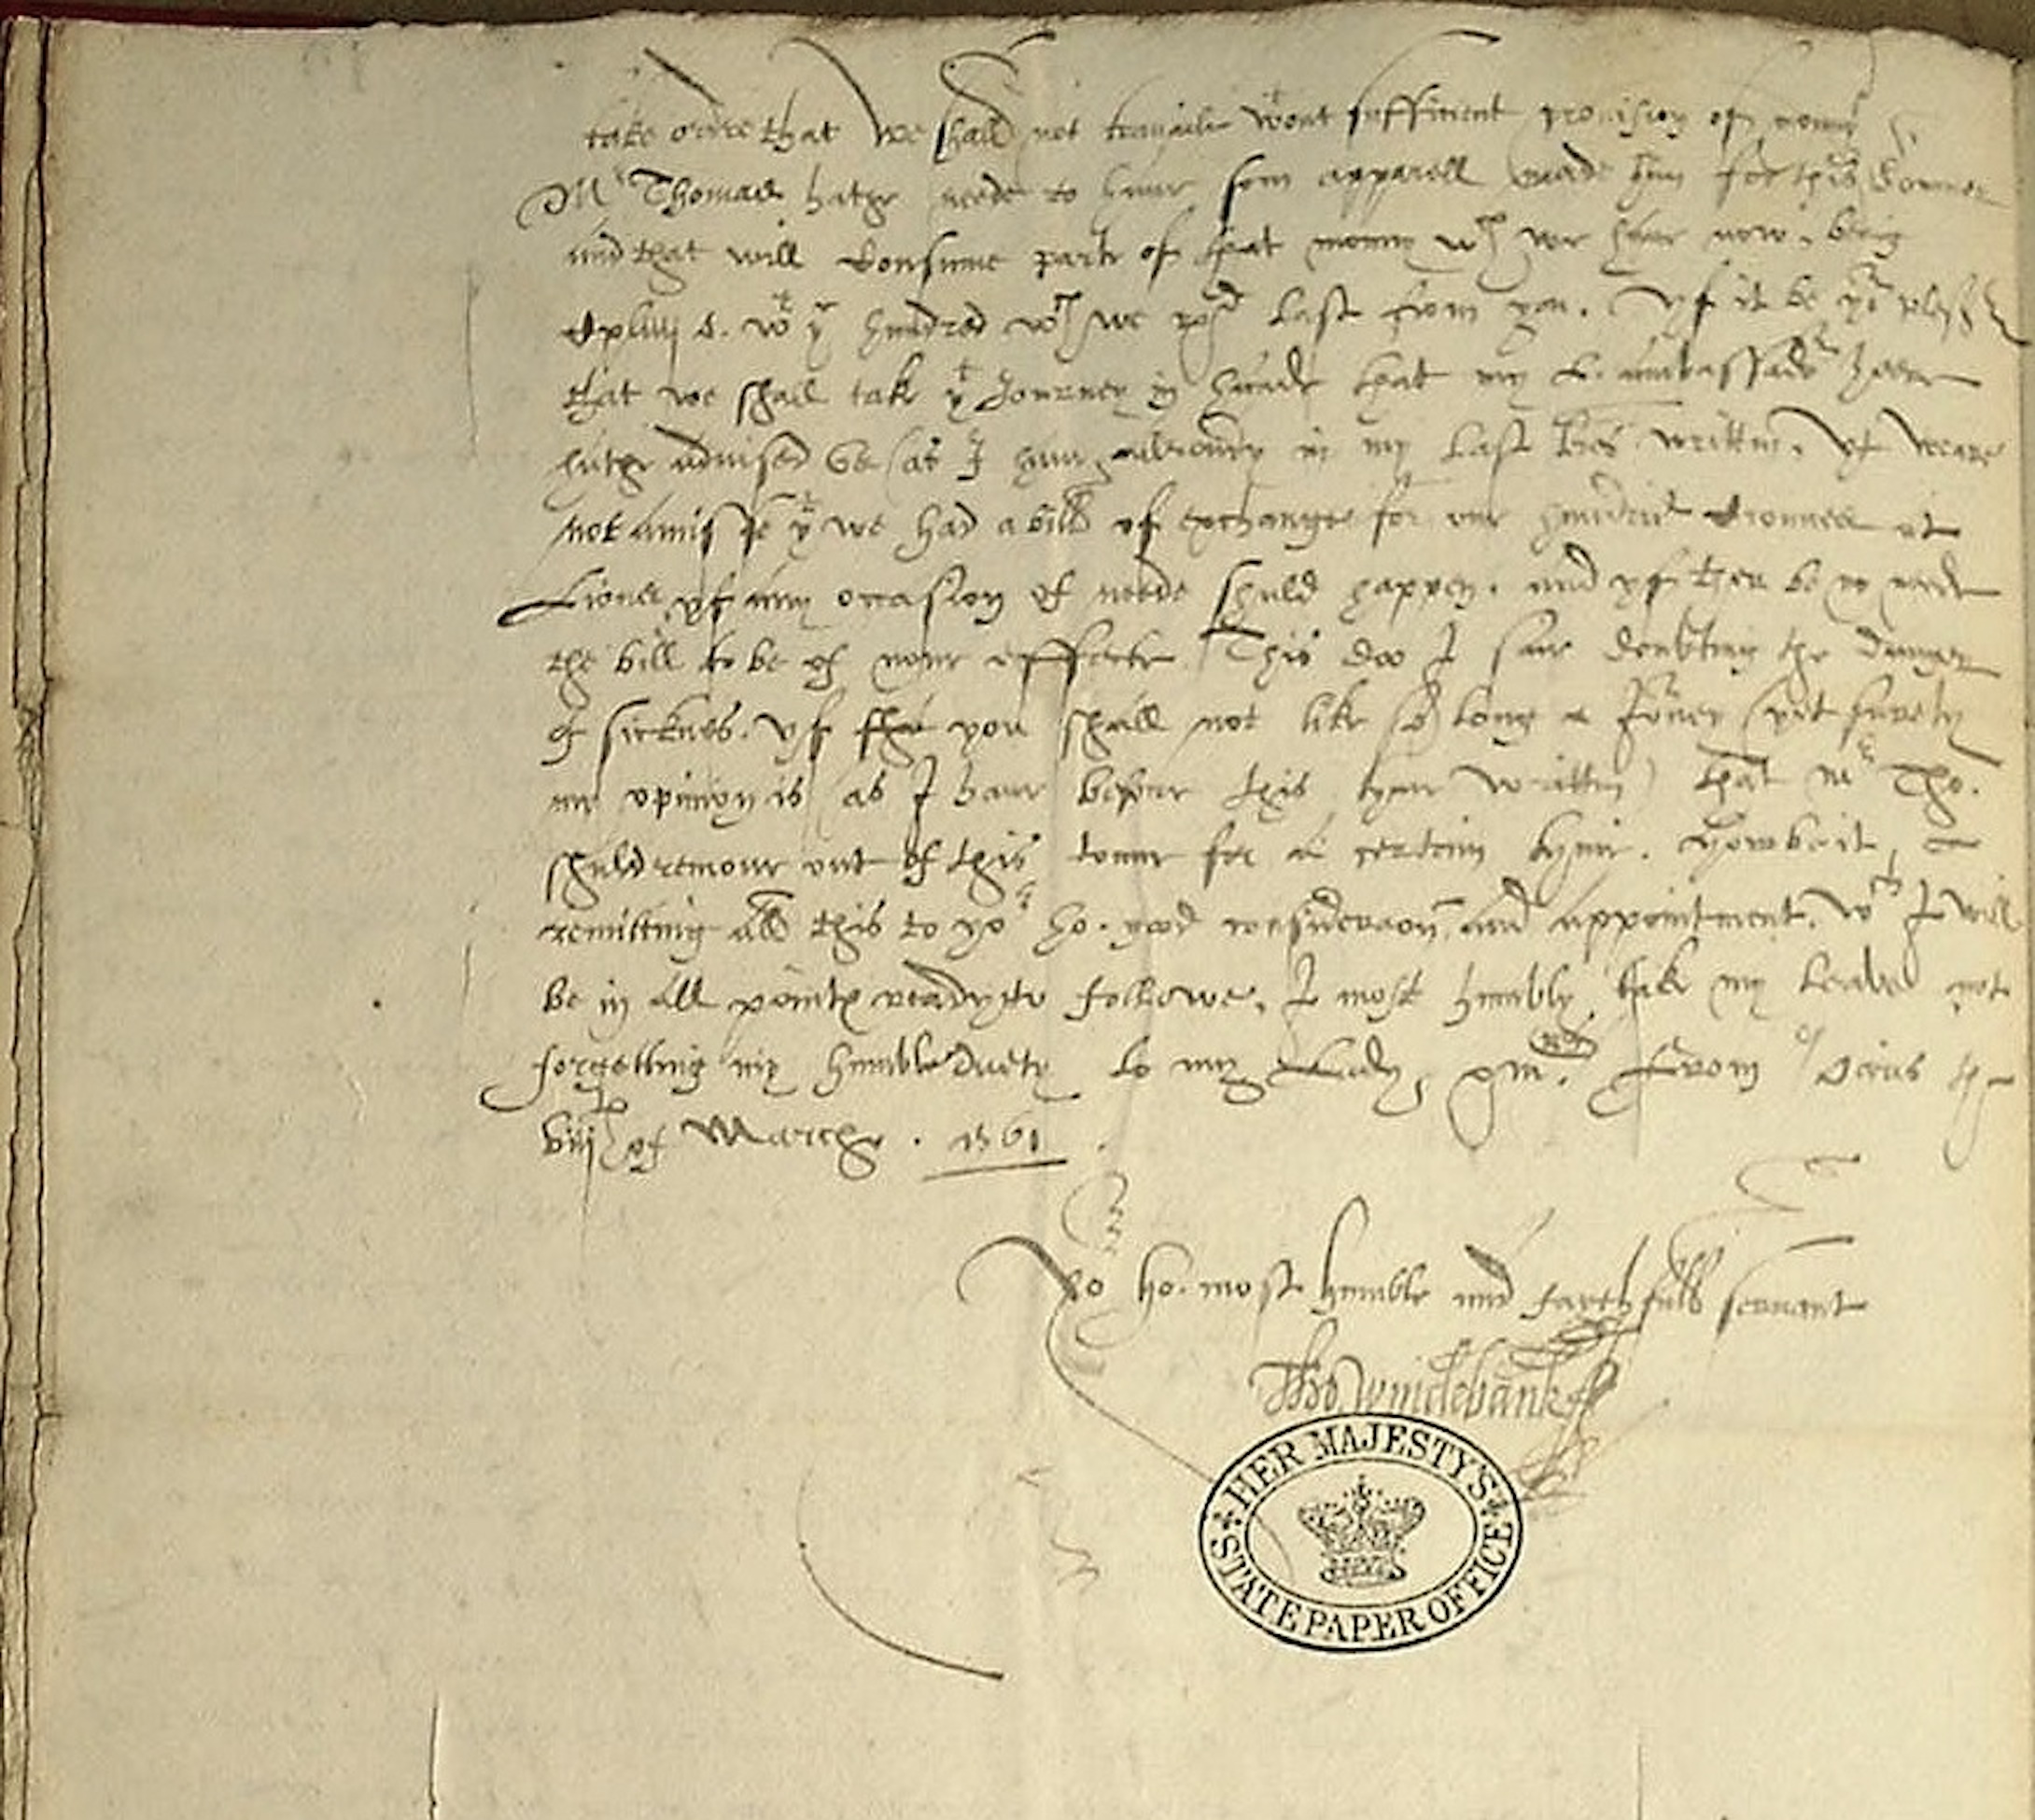 take ordre that we shall not travaile wtout sufficient provision of monny
Mr Thomas hathe neede to have som apparell made him for this sommer
and that will consume parte of that monny wch we have now, being
wt ye hundred wch we rescd last from you. Yf it be yor pleas
that we shall take yt Journey in hande that my L. ambassador heere
hathe advised (as I have allredy in my last lres written. Yt weare
not amisse yt we had a bill of exchange for one hundred Crownes at
Lions, yf any occasion of neede shuld happen. and yf ther be no neede
the bill to be of none effecte This doo I saie doubting the daunger
of sicknes. Yf that you shall not like so long a Jorney (yet surely
my opinion is (as I have before this tyme written) that Mr Tho.
shuld remove out of this towne for a certein tyme. Howbeit,
remitting all this to yor ho. good consideraon and appointment, wch I will
be in all pointes readye to followe, I most humbly take my leave not
forgetting my humble duety to my Lady, From Paris the
viijth of Marche . 1561
Yor ho. most humble and faythfull servant
Tho Windebank
HER MAJESTY'S
STATE PAPER OFFICE